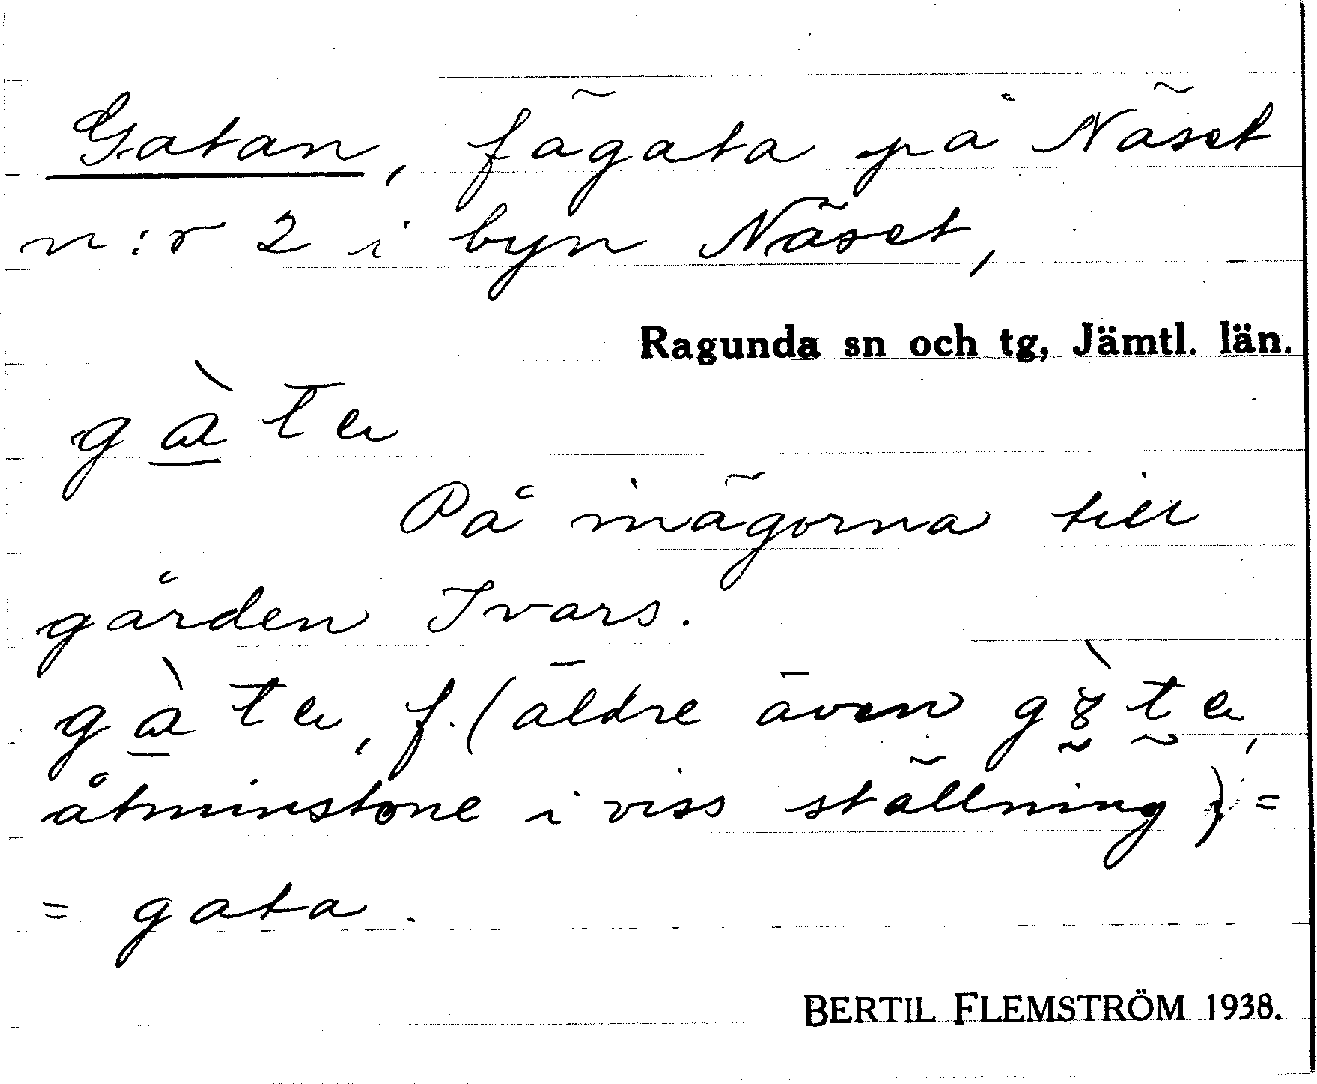 Gatan, fägata på Näset
n:r 2 i byn Näset,
Ragunda sn och tg, Jämtl. län.
På inägorna till
gården Ivars.
f. (äldre även
åtminstone i viss ställning) =
= gata.
BERTIL FLEMSTRÖM 1938.